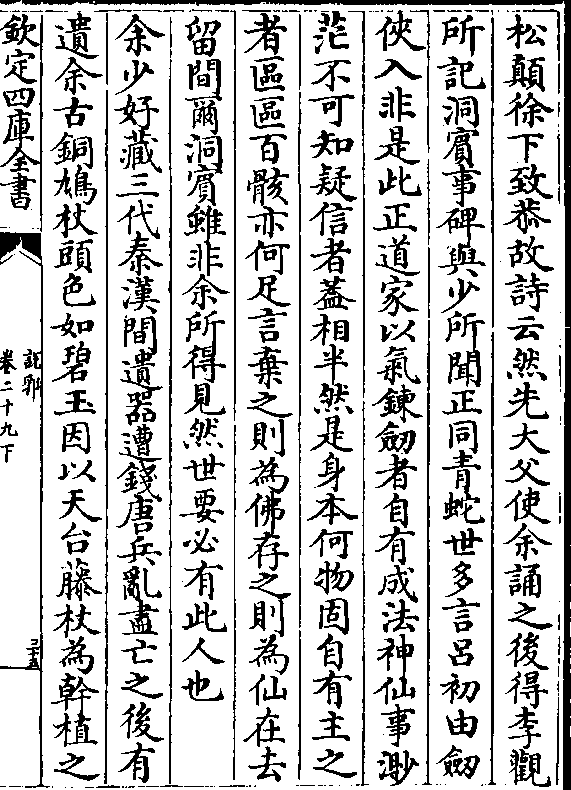 松顛徐下致恭故詩云然先大父使余誦之後得李觀
所記洞賓事碑與少所聞正同青蛇世多言呂初由劔
俠入非是此正道家以氣鍊劔者自有成法神仙事渺
茫不可知疑信者葢相半然是身本何物固自有主之
者區區百骸亦何足言棄之則為佛存之則為仙在去
留間爾洞賓雖非余所得見然世要必有此人也
余少好藏三代秦漢間遺器遭錢唐兵亂盡亡之後有
遺余古銅鳩杖頭色如碧玉因以天台藤杖為幹植之
欽定四庫全書
說郛
卷二十九下
三十五